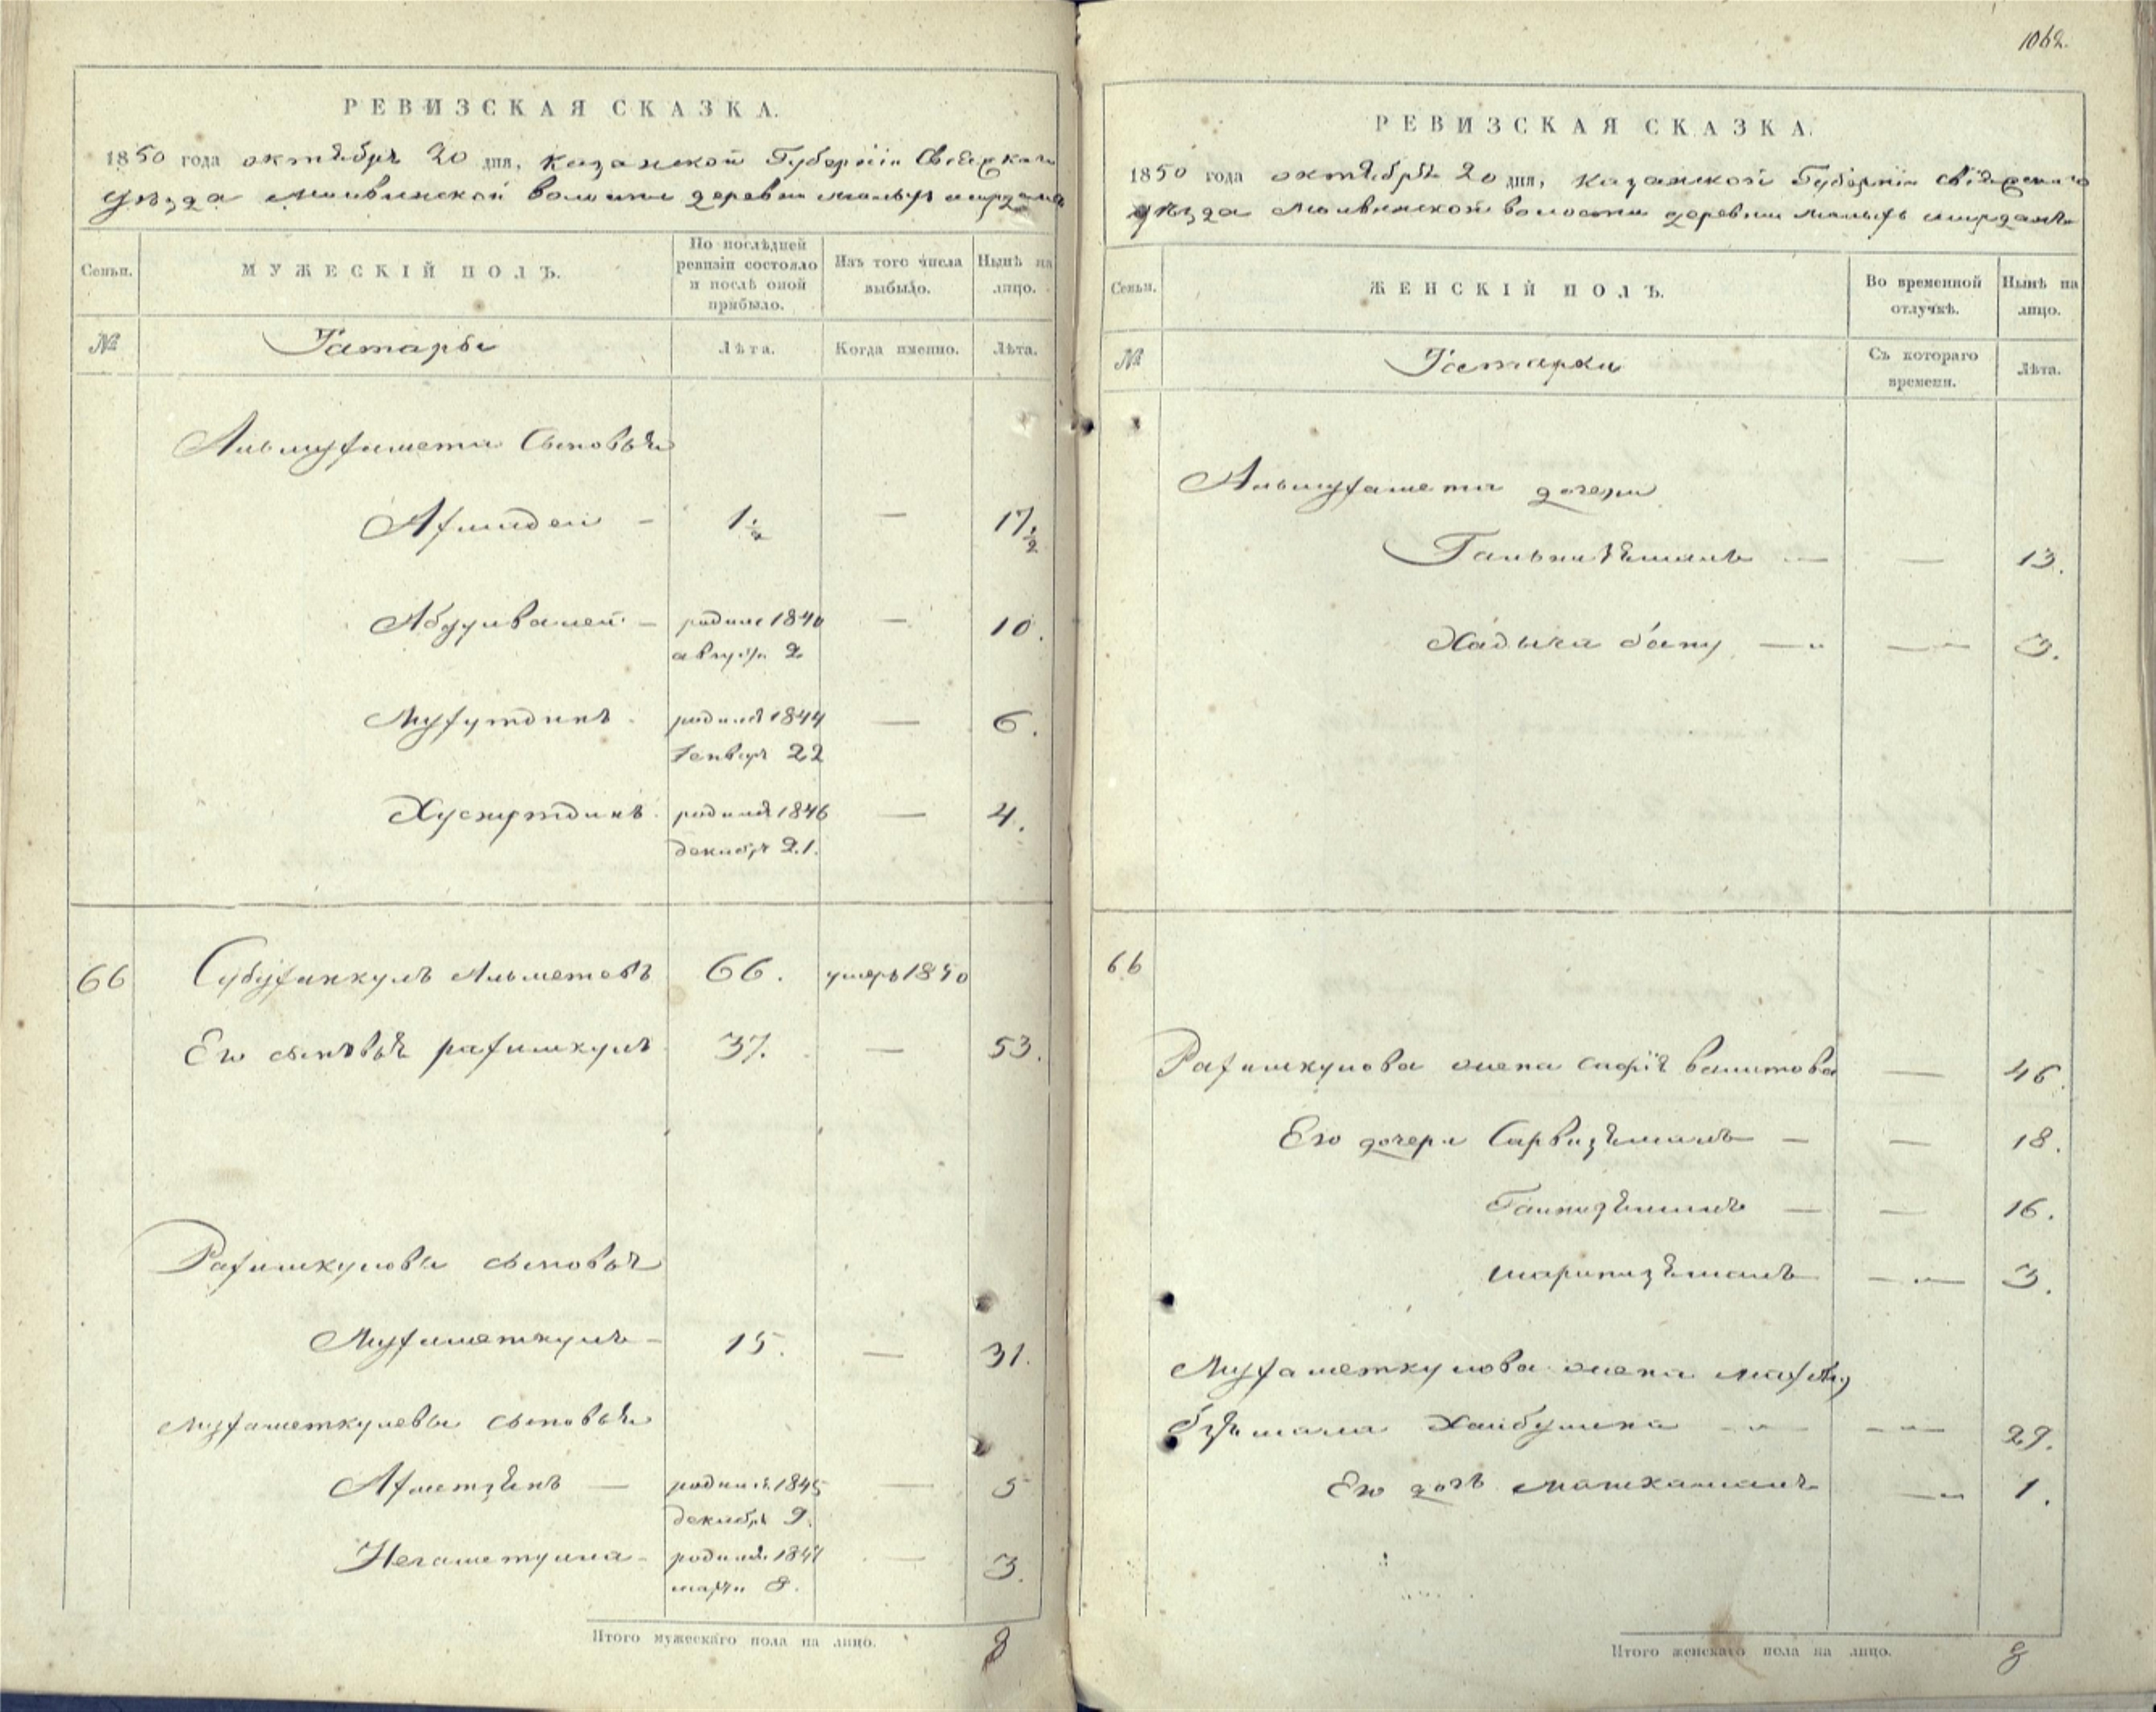 РЕВИЗСКАЯ СКАЗКА.
1850 года октября 20 дня, Казанской Губерніи Свіяжскаго
уѣзда Молвинской волости деревни малыхъ ширданъ
Семьи.
МУЖЕСКІЙ ПОЛЪ.
По послѣдней ревизіи состояло и послѣ оной прибыло.
Изъ того числа выбыло.
Нынѣ на лицо.
№
Татары
Лѣта.
Когда именно.
Лѣта.
Альмухаметя Сыновья
Ахмадей — 1 1/2 — 17 1/2
Абдулвалей — родился 1840 — 10.
августа 2
Мухутдинъ родился 1844 — 6.
Генваря 22
Хуснутдинъ родился 1846 — 4.
декабря 21.
66 Субуханкулъ Альметевъ 66. умеръ 1850
Его сыновья рахимкулъ 37. — 53.
Рахимкулова сыновья
Мухаметкулъ — 15. — 31.
Мухаметкулевы сыновья
Ахметзянъ — родился 1845 — 5
декабря 9.
Негаметулла — родился 1847 — 3.
марта 8.
Итого мужескаго пола на лицо. 8
1062.
РЕВИЗСКАЯ СКАЗКА.
1850 года октября 20 дня, Казанской Губерніи Свіяжскаго
уѣзда Молвинской волости деревни малыхъ ширданъ
Семьи.
ЖЕНСКІЙ ПОЛЪ.
Во временной отлучкѣ.
Нынѣ на лицо.
№
Татарки
Съ котораго времени.
Лѣта.
Альмухаметя дочери
— — 13.
Хадыча бану — — 3.
66
Рахимкулова жена сафія валитова — 46.
Его дочери Сарвизямалъ — — 18.
Галпизямалъ — — 16.
шарипизямалъ — — 3.
Мухаметкулова жена
Хайбулина — — 29.
Его дочь — 1.
Итого женскаго пола на лицо. 8